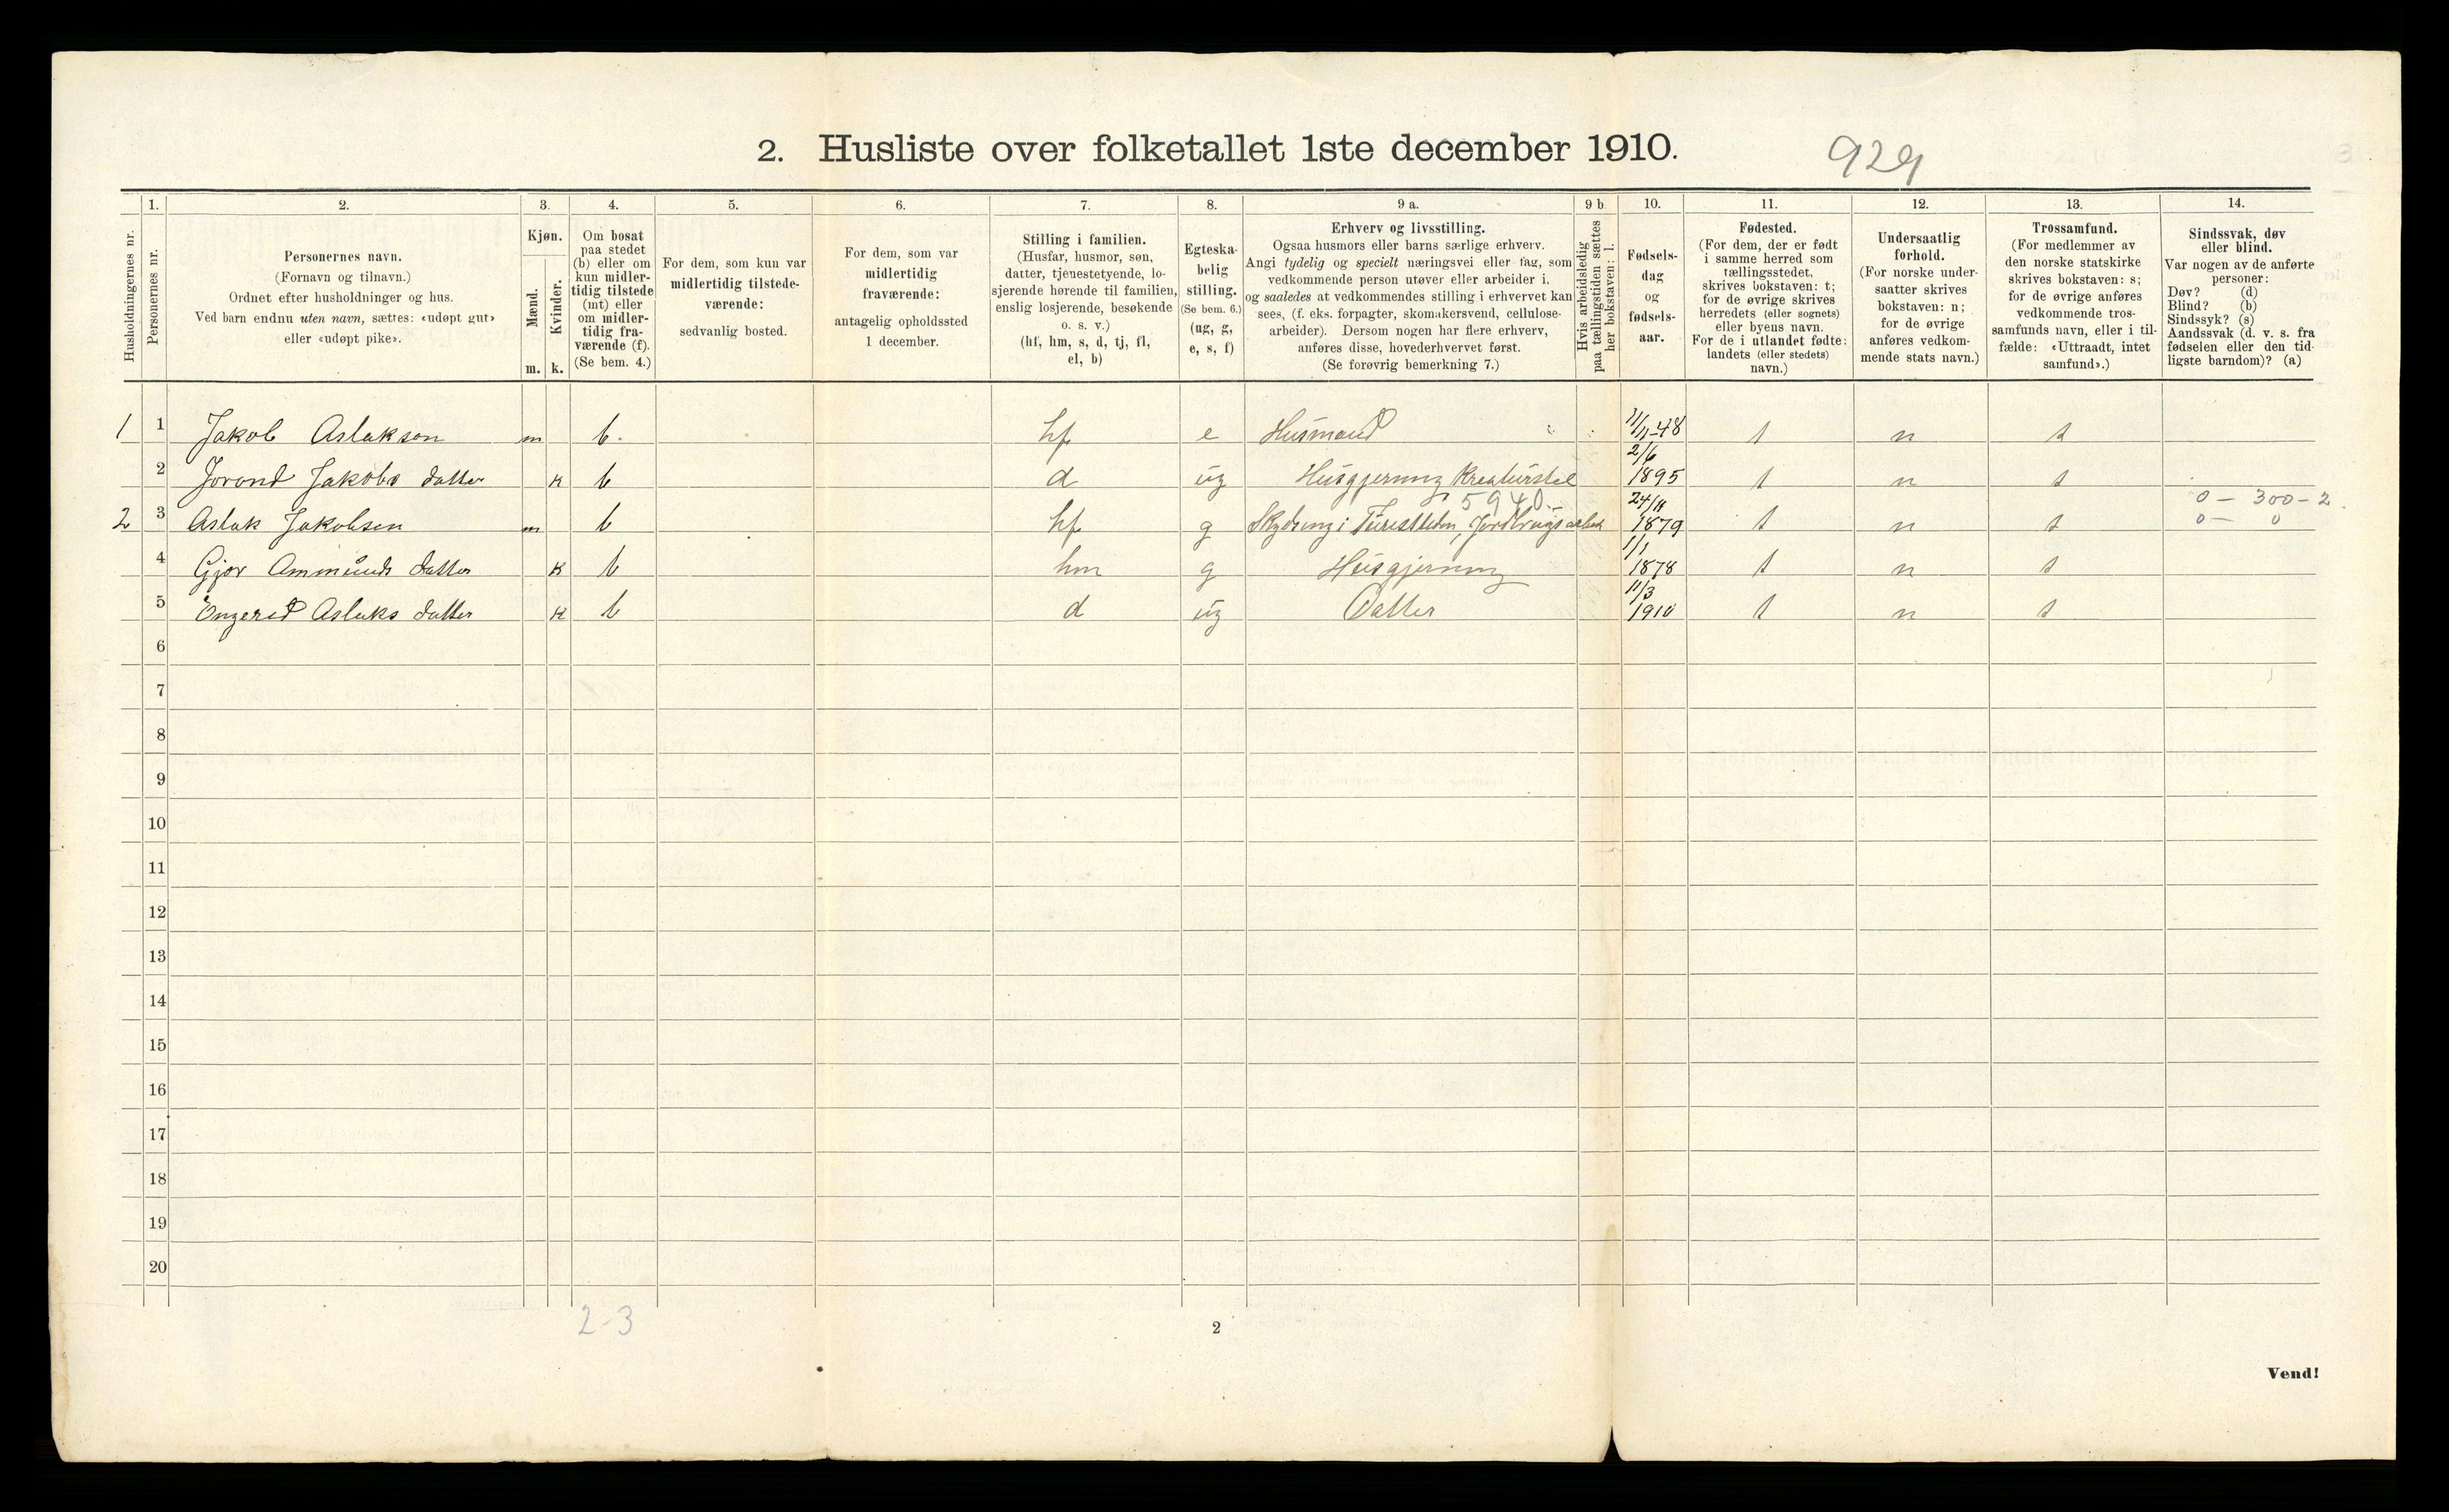 2. Husliste over folketallet 1ste december 1910.
929
Husholdningernes nr.
1.
Personernes nr.
2.
Personernes navn.
(Fornavn og tilnavn.)
Ordnet efter husholdninger og hus.
Ved barn endnu uten navn, sættes: «udøpt gut»
eller «udøpt pike».
3.
Kjøn.
Mænd.
Kvinder.
m. k.
4.
Om bosat
paa stedet
(b) eller om
kun midler-
tidig tilstede
(mt) eller
om midler-
tidig fra-
værende (f).
(Se bem. 4.)
5.
For dem, som kun var
midlertidig tilstede-
værende:
sedvanlig bosted.
6.
For dem, som var
midlertidig
fraværende:
antagelig opholdssted
1 december.
7.
Stilling i familien.
(Husfar, husmor, søn,
datter, tjenestetyende, lo-
sjerende hørende til familien,
enslig losjerende, besøkende
o. s. v.)
(hf, hm, s, d, tj, fl,
el, b)
8.
Egteska-
belig
stilling.
(Se bem. 6.)
(ug, g,
e, s, f)
9 a.
Erhverv og livsstilling.
Ogsaa husmors eller barns særlige erhverv.
Angi tydelig og specielt næringsvei eller fag, som
vedkommende person utøver eller arbeider i,
og saaledes at vedkommendes stilling i erhvervet kan
sees, (f. eks. forpagter, skomakersvend, cellulose-
arbeider). Dersom nogen har flere erhverv,
anføres disse, hovederhvervet først.
(Se forøvrig bemerkning 7.)
9 b.
Hvis arbeidsledig
paa tællingstiden sættes
her bokstaven: l.
10.
Fødsels-
dag
og
fødsels-
aar.
11.
Fødested.
(For dem, der er født
i samme herred som
tællingsstedet,
skrives bokstaven: t;
for de øvrige skrives
herredets (eller sognets)
eller byens navn.
For de i utlandet fødte:
landets (eller stedets)
navn.)
12.
Undersaatlig
forhold.
(For norske under-
saatter skrives
bokstaven: n;
for de øvrige
anføres vedkom-
mende stats navn.)
13.
Trossamfund.
(For medlemmer av
den norske statskirke
skrives bokstaven: s;
for de øvrige anføres
vedkommende tros-
samfunds navn, eller i til-
fælde: «Uttraadt, intet
samfund».)
14.
Sindssvak, døv
eller blind.
Var nogen av de anførte
personer:
Døv? (d)
Blind? (b)
Sindssyk? (s)
Aandssvak (d. v. s. fra
fødselen eller den tid-
ligste barndom)? (a)
1 1 Jakob Aslakson m b. hf e Husmand 11/11-48 t n s
2 Jorond Jakobs datter k b d ug Husgjerning Kreaturstel 2/6 1895 t n s
5940. 0 - 300 - 2
2 3 Aslak Jakobsen m b hf g Skydsing i Turisttiden, Jordbrugsarbeid 1879 t n s 0 - 0
4 Gjør Ammunds datter k b hm g Husgjerning 1/1 1878 t n s
5 Engerid Aslaks datter k b d ug Datter 11/3 1910 t n s
6
7
8
9
10
11
12
13
14
15
16
17
18
19
20
2-3
2
Vend!